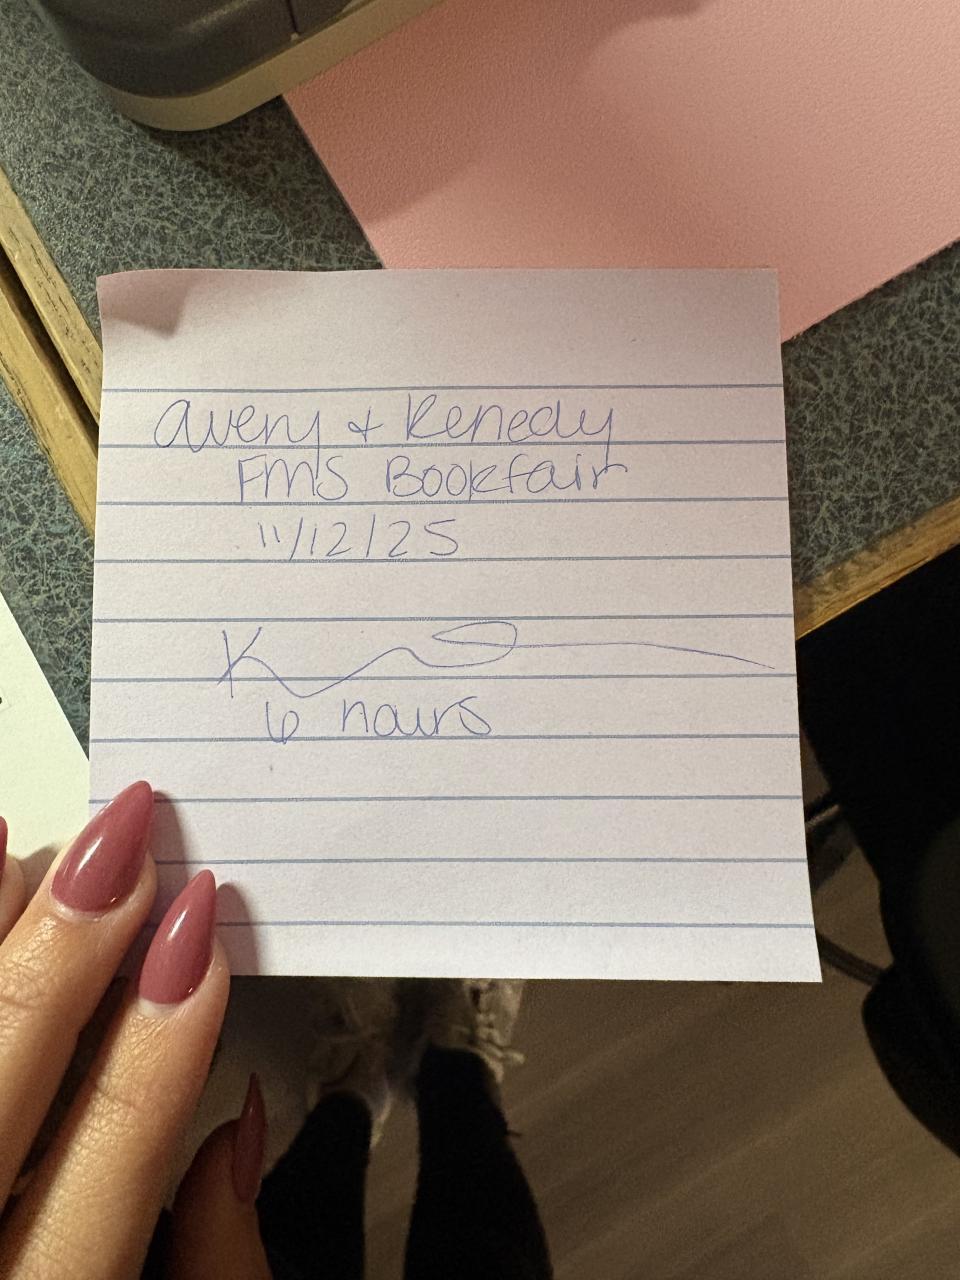 Avery + Kenedy
FMS Bookfair
11/12/25
6 hours